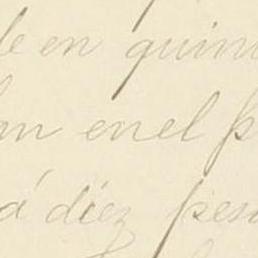 de en quin
an enel p
á diez pes